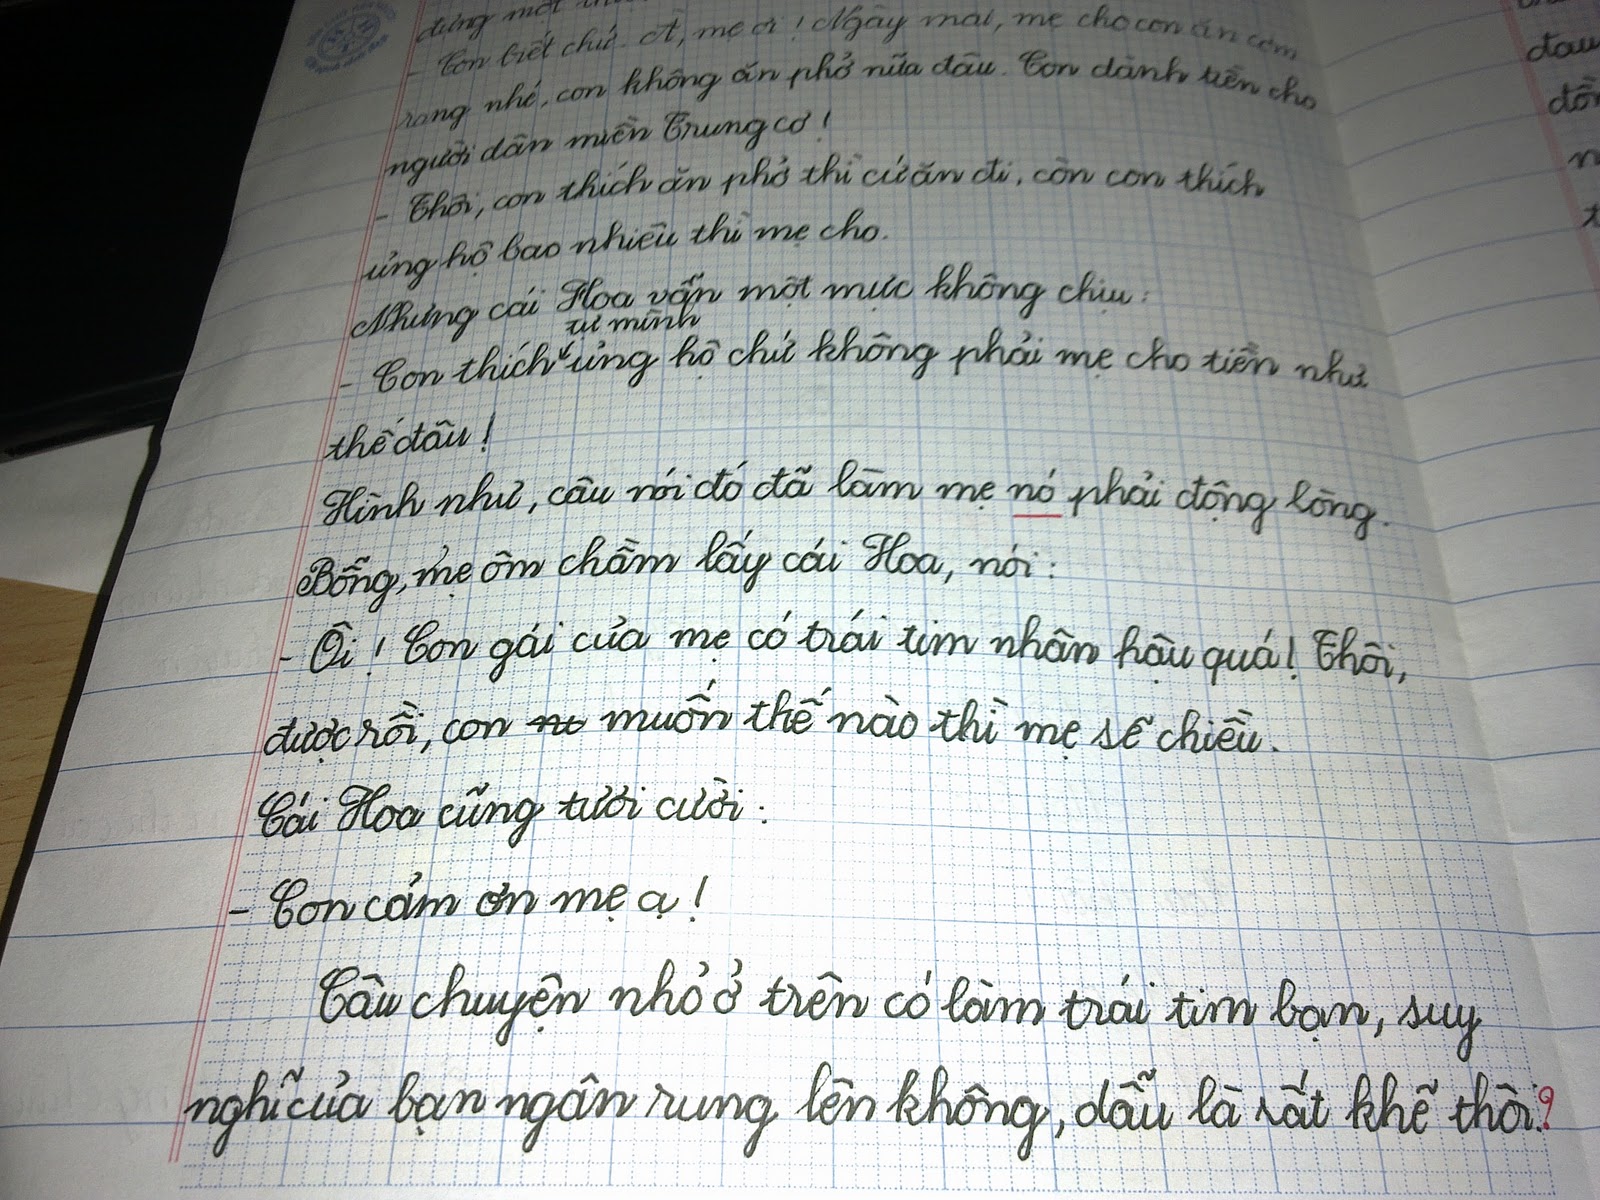 đứng một
- Con biết chứ. À, mẹ ơi! Ngày mai, mẹ cho con ăn cơm
rang nhé, con không ăn phở nữa đâu. Con dành tiền cho
người dân miền Trung cơ!
- Thôi, con thích ăn phở thì cứ ăn đi, còn con thích
ủng hộ bao nhiêu thì mẹ cho.
Nhưng cái Hoa vẫn một mực không chịu:
tự mình
- Con thích ủng hộ chứ không phải mẹ cho tiền như
thế đâu!
Hình như, câu nói đó đã làm mẹ nó phải động lòng.
Bỗng, mẹ ôm chầm lấy cái Hoa, nói:
- Ôi! Con gái của mẹ có trái tim nhân hậu quá! Thôi,
được rồi, con muốn thế nào thì mẹ sẽ chiều.
Cái Hoa cũng tươi cười:
- Con cảm ơn mẹ ạ!
Câu chuyện nhỏ ở trên có làm trái tim bạn, suy
nghĩ của bạn ngân rung lên không, dẫu là rất khẽ thôi?
đau